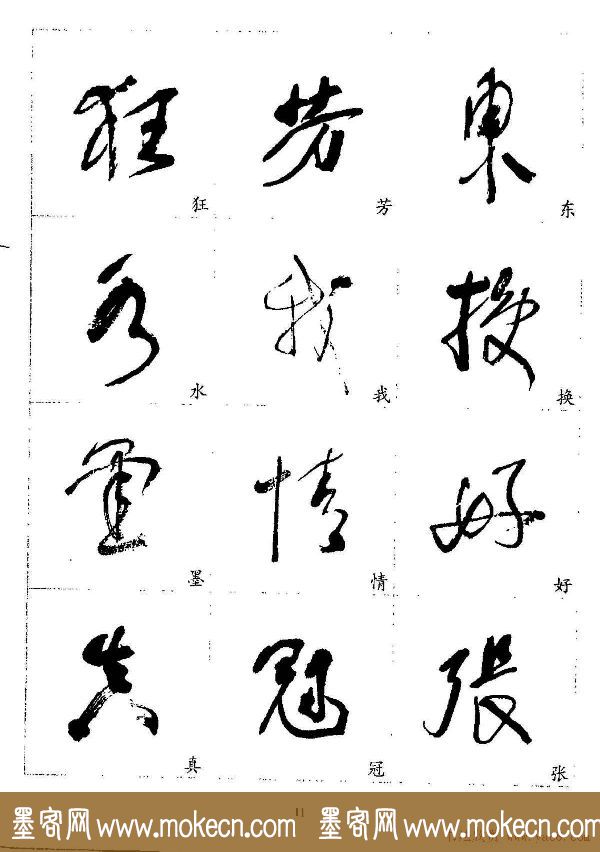 狂 芳 東
狂 芳 东
水 我 換
水 我 换
墨 情 好
墨 情 好
真 冠 張
真 冠 张
11
墨客网 www.mokecn.com 墨客网 www.mokecn.com